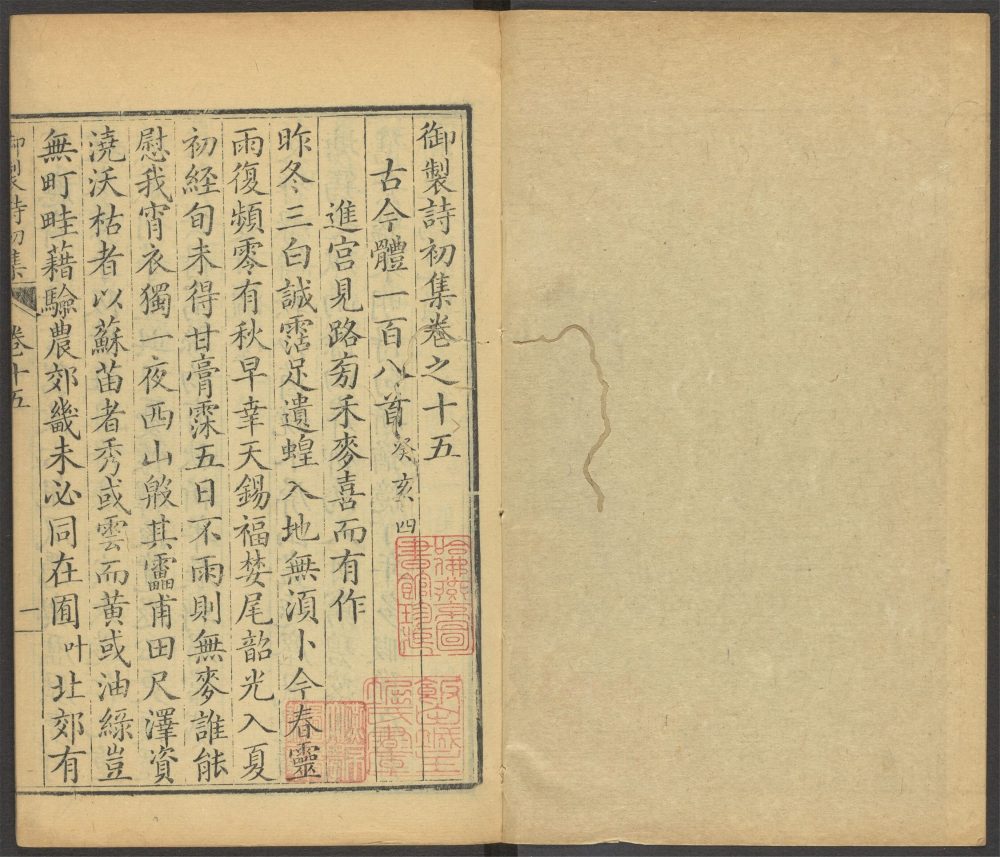 御製詩初集卷之十五
古今體一百八首癸亥四
進宮見路旁禾麥喜而有作
昨冬三白誠霑足遺蝗入地無湏卜今春靈
雨復頻零有秋早幸天錫福婪尾韶光入夏
初経旬未得甘膏霂五日不雨則無麥誰能
慰我宵衣獨一夜西山殷其靁甫田尺澤資
澆沃枯者以蘇苗者秀或雲而黃或油綠豈
無町畦藉驗農郊畿未必同在囿叶北郊有
御製詩初集 卷十五 一
哈佛燕京圖書館珍藏